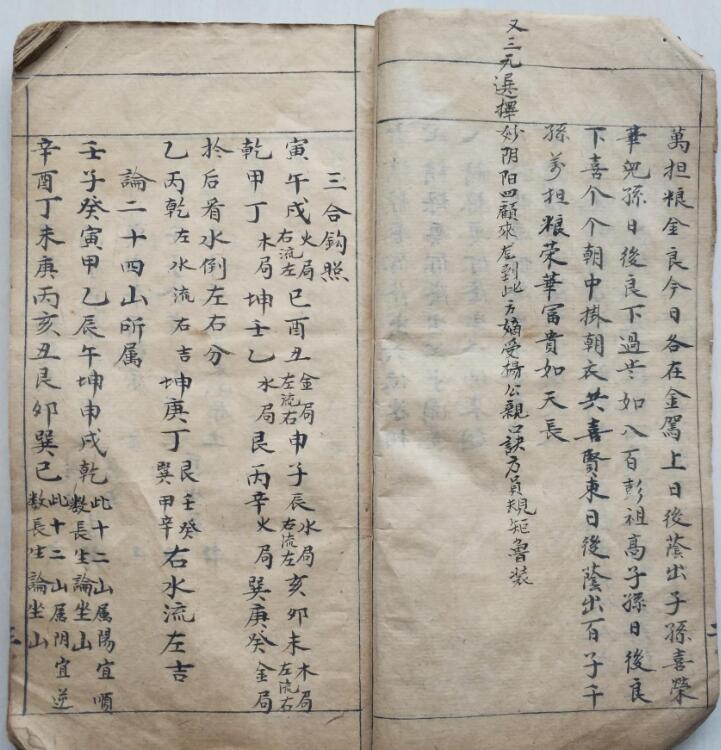 萬担粮金良今日各在金駕上日後蔭出子孫喜榮
華兒孫日後良下過岦如八百彭祖高子孫日後良
下喜个个朝中掛朝衣共喜賢東日後蔭出百子千
孫萬担粮荣華富貴如天長
又三元選擇妙阴阳四顧來左到此方嫡受揚公親口訣方員規矩魯裝
三合鈎照
寅午戌火局右流左巳酉丑金局左流右申子辰水局右流左亥卯未木局左流右
乾甲丁木局坤壬乙水局艮丙辛火局巽庚癸金局
扵后看水倒左右分
乙丙乾左水流右吉坤庚丁艮壬癸巽甲辛右水流左吉
論二十四山所属
壬子癸寅甲乙辰午坤申戌乾此十二山属陽宜順数長生論坐山
辛酉丁未庚丙亥丑艮卯巽巳此十二山属阴宜逆数長生論坐山